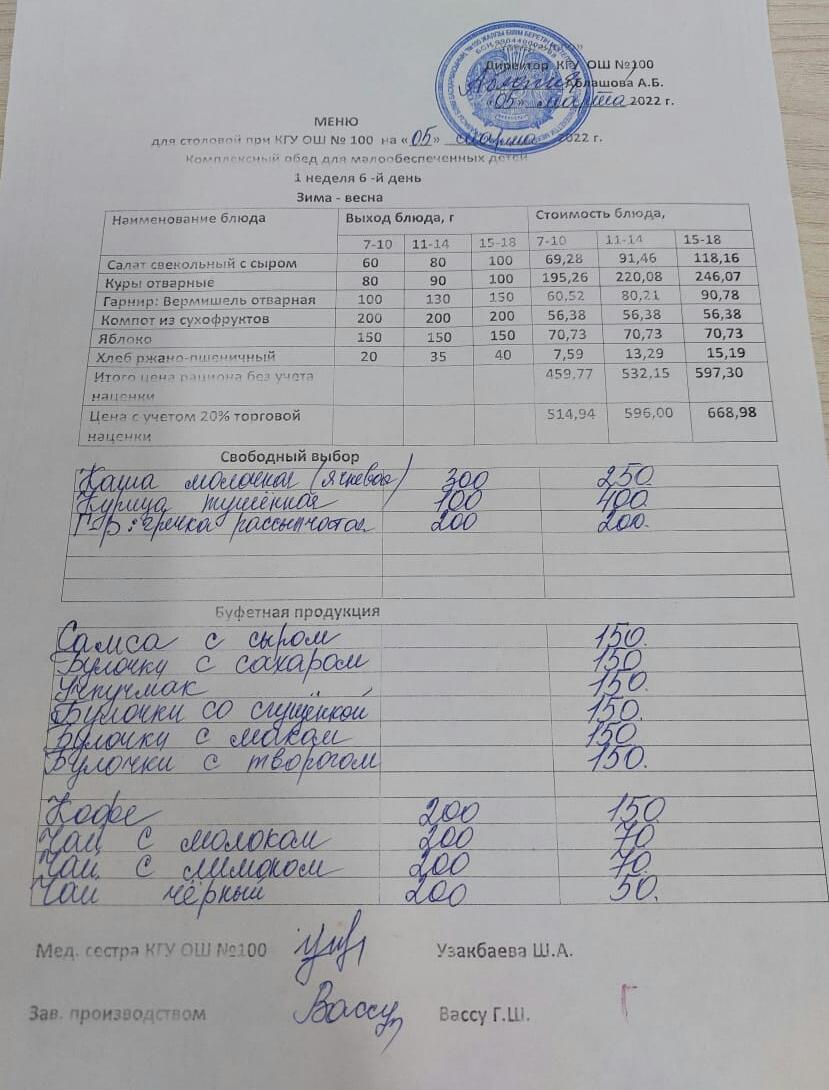 Директор КГУ ОШ №100
Аблашова А.Б.
«05» марта 2022 г.
МЕНЮ
для столовой при КГУ ОШ № 100 на «05» марта 2022 г.
Комплексный обед для малообеспеченных детей
1 неделя 6 -й день
Зима - весна
Наименование блюда Выход блюда, г Стоимость блюда,
7-10 11-14 15-18 7-10 11-14 15-18
Салат свекольный с сыром 60 80 100 69,28 91,46 118,16
Куры отварные 80 90 100 195,26 220,08 246,07
Гарнир: Вермишель отварная 100 130 150 60,52 80,21 90,78
Компот из сухофруктов 200 200 200 56,38 56,38 56,38
Яблоко 150 150 150 70,73 70,73 70,73
Хлеб ржано-пшеничный 20 35 40 7,59 13,29 15,19
Итого цена рациона без учета 459,77 532,15 597,30
наценки
Цена с учетом 20% торговой 514,94 596,00 668,98
наценки
Свободный выбор
Каша молочная (ячневая) 300 250.
Курица тушённая 100 400.
Г-р: гречка рассыпчатая 200 200.
Буфетная продукция
Самса с сыром 150.
Булочки с сахаром 150
Учпучмак 150.
Булочки со сгущёнкой 150.
Булочки с маком 150
Булочки с творогом 150.
Кофе 200 150
Чай с молоком 200 70
Чай с лимоном 200 70.
Чай чёрный 200 50.
Мед. сестра КГУ ОШ №100 Узакбаева Ш.А.
Зав. производством Вассу Вассу Г.Ш.